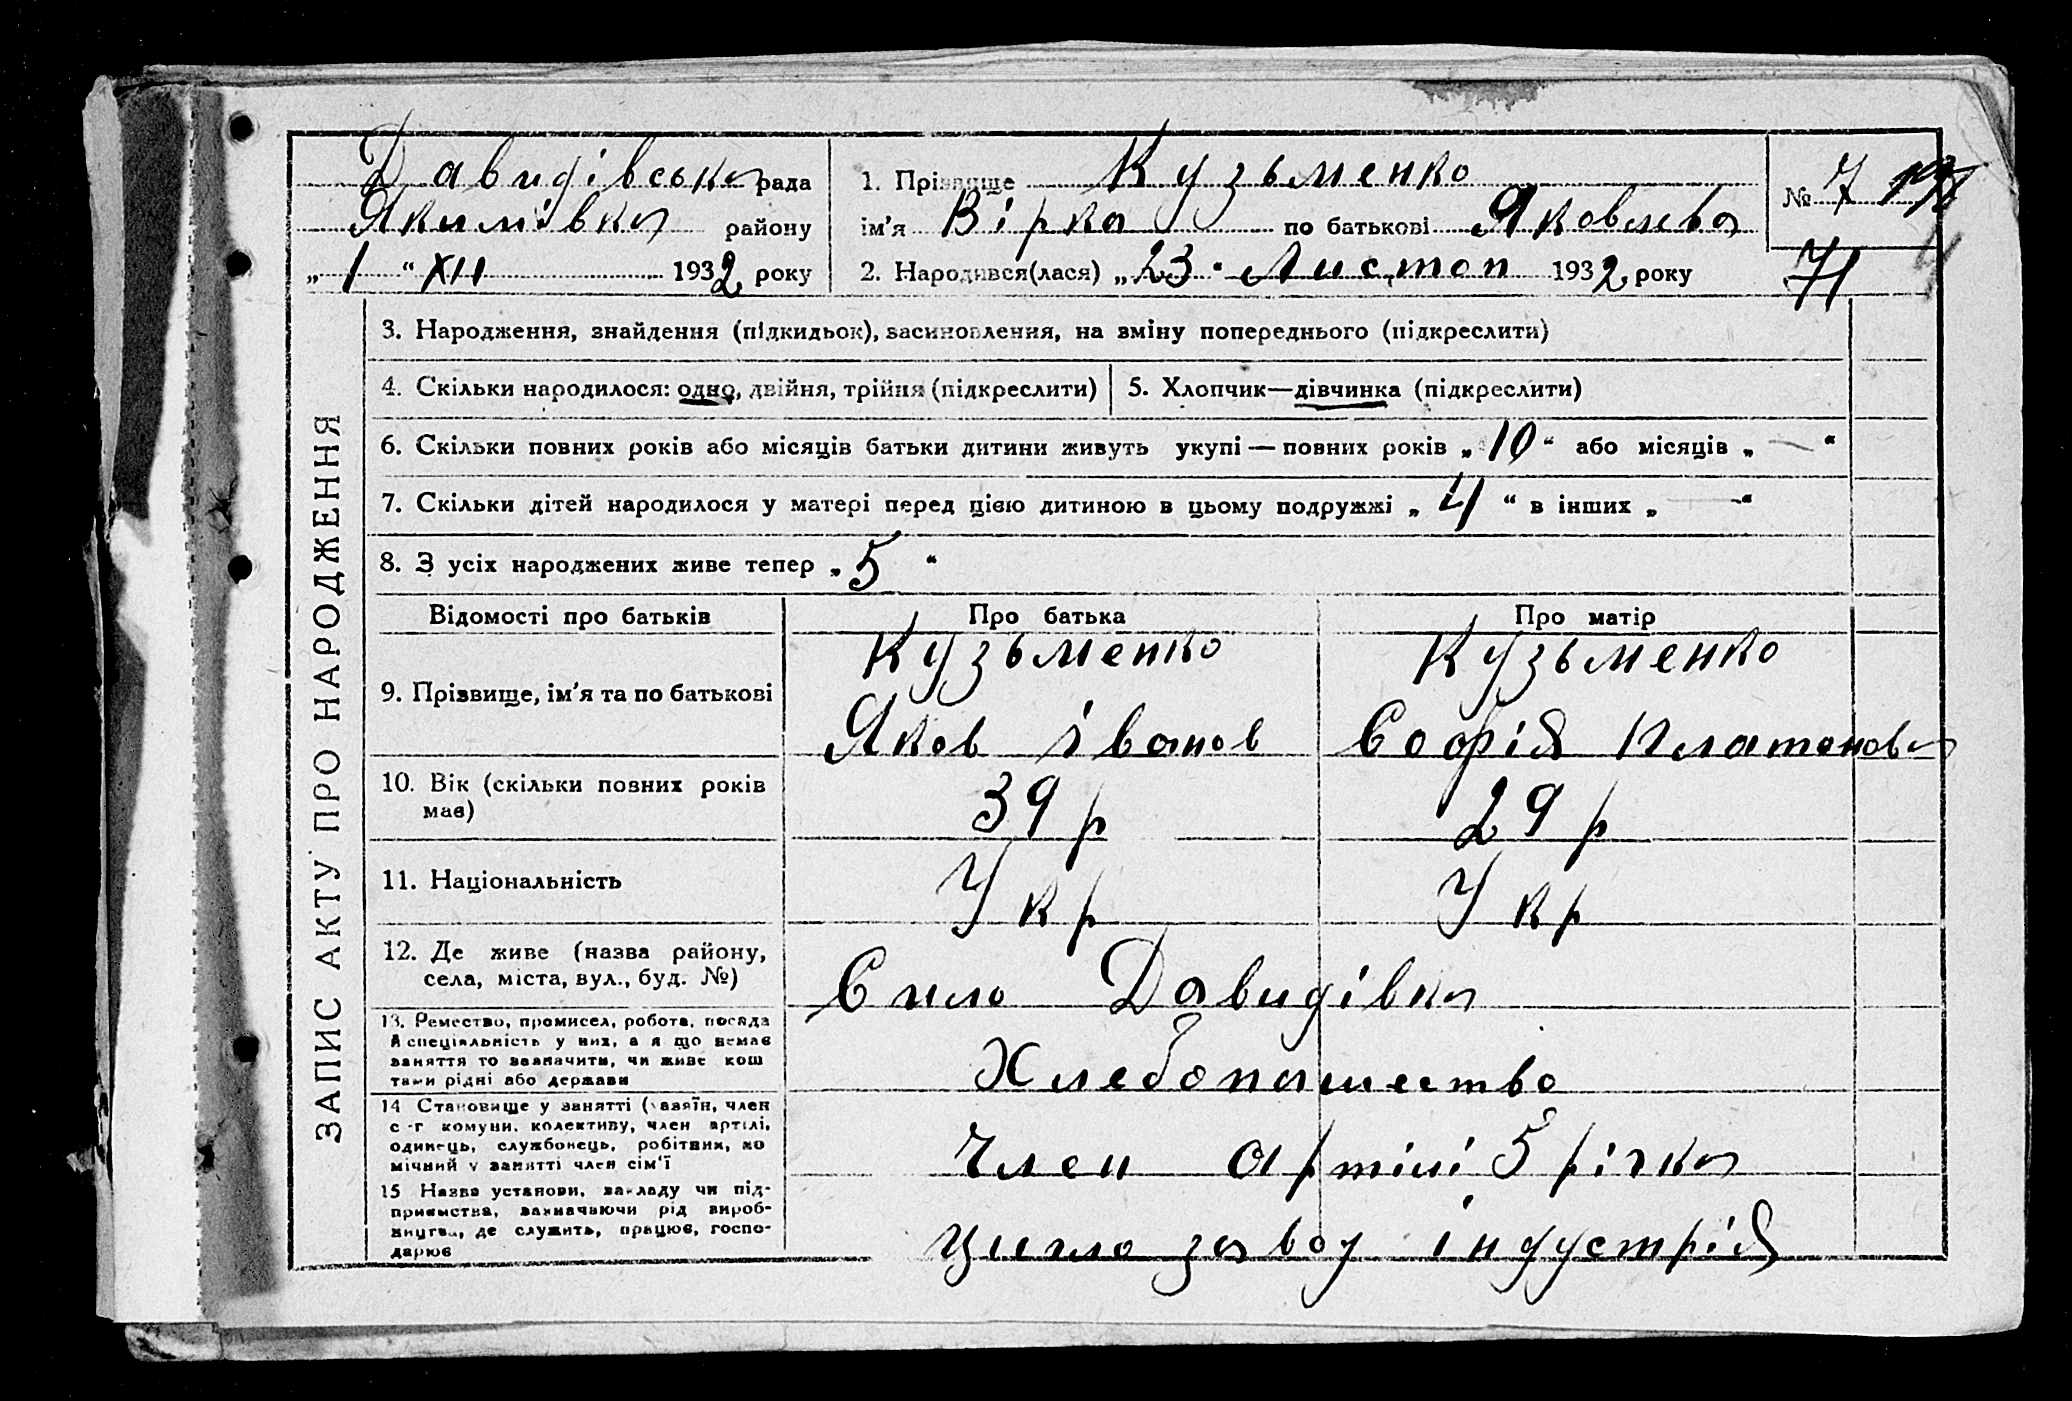 Давидівська рада
Якимівка району
„1“ XII 1932 року
1. Прізвище Кузьменко
ім'я Вірка по батькові Яковлева
2. Народився(лася) „23“ Листоп 1932 року
№ 7
71
ЗАПИС АКТУ ПРО НАРОДЖЕННЯ
3. Народження, знайдення (підкидьок), засиновлення, на зміну попереднього (підкреслити)
4. Скільки народилося: одно, двійня, трійня (підкреслити)
5. Хлопчик—дівчинка (підкреслити)
6. Скільки повних років або місяців батьки дитини живуть укупі — повних років „10“ або місяців „—“
7. Скільки дітей народилося у матері перед цією дитиною в цьому подружжі „4“ в інших „—“
8. З усіх народжених живе тепер „5“
Відомості про батьків Про батька Про матір
9. Прізвище, ім'я та по батькові
Кузьменко
Яков Іванов
Кузьменко
Софія Платонова
10. Вік (скільки повних років
має)
39 р
29 р
11. Національність
Укр
Укр
12. Де живе (назва району,
села, міста, вул., буд. №)
Сило Давидівка
13. Ремество, промисел, робота, посада
й спеціяльність у них, а я що немає
заняття то зазначити, чи живе кош
тами рідні або держави
Хлебопашество
14 Становище у занятті (хазяїн, член
с-г комуни, колективу, член артілі,
одинець, службовець, робітник, по
мічний у занятті член сім'ї
член артілі 5 річка
15 Назва установи, закладу чи під-
приємства, зазначаючи рід вироб-
ництва, де служить, працює, госпо-
дарює
індустрія